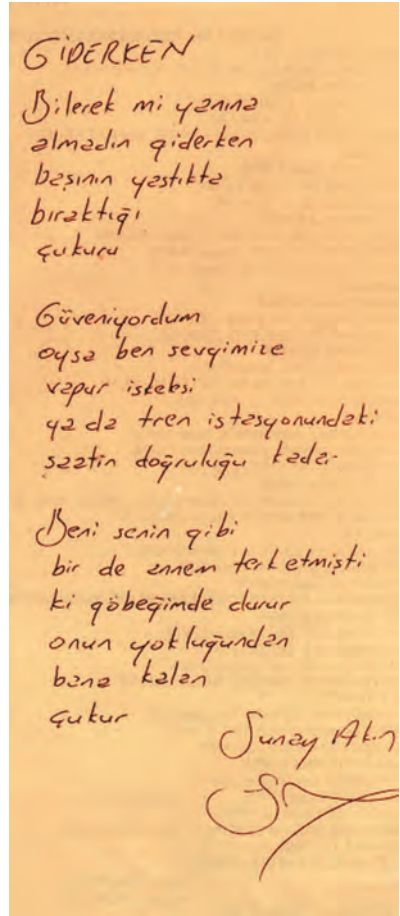 GİDERKEN
Bilerek mi yanına
almadın giderken
başının yastıkta
bıraktığı
çukuru
Güveniyordum
oysa ben sevgimize
vapur iskelesi
ya da tren istasyonundaki
saatin doğruluğu kadar
Beni senin gibi
bir de annem terketmişti
ki göbeğimde durur
onun yokluğundan
bana kalan
çukur
Sunay Akın